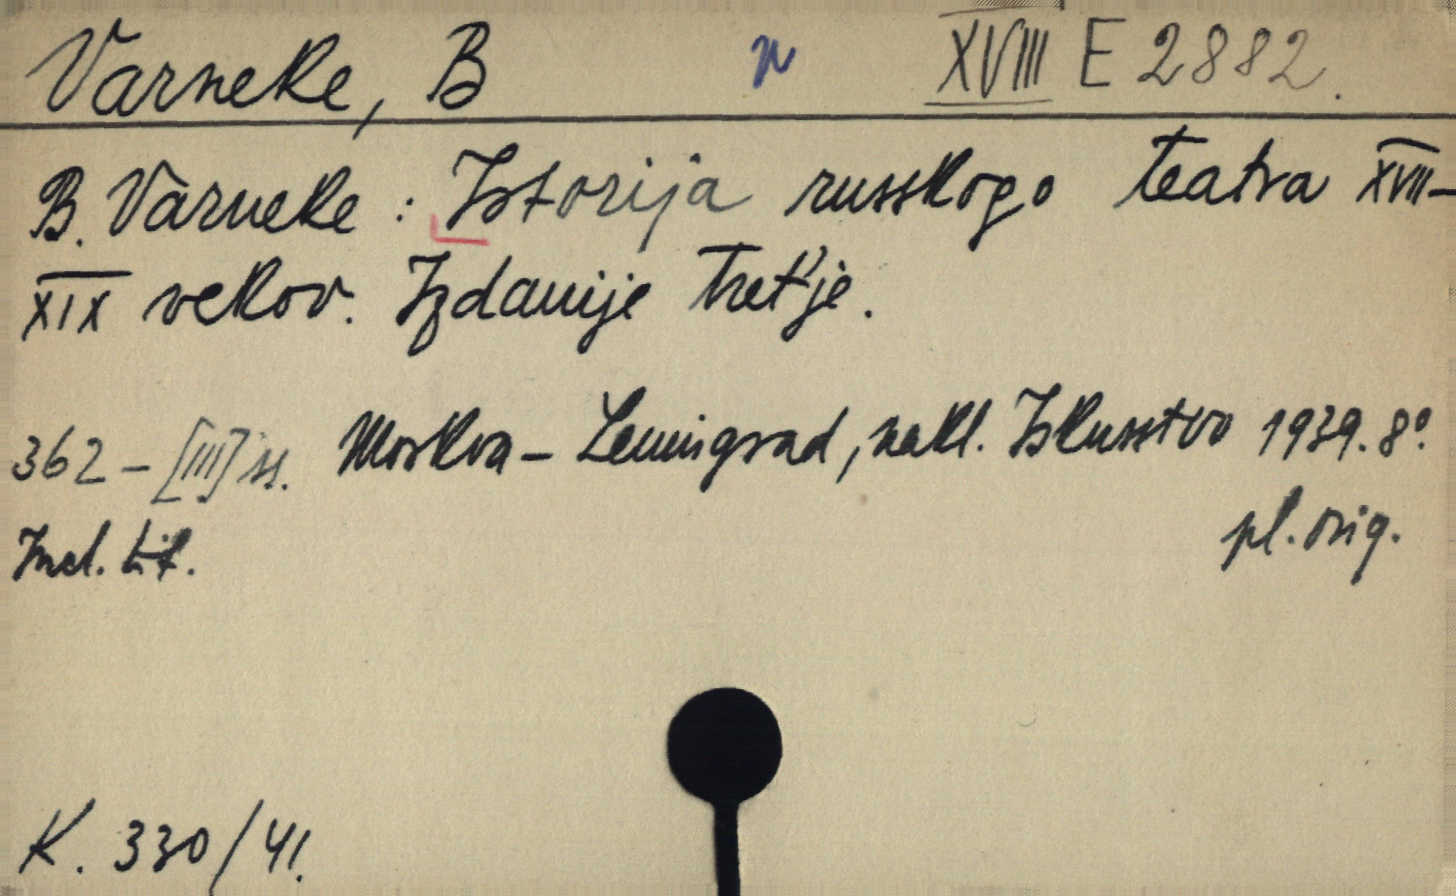 Varneke, B n XVIII E 2882.
B. Varneke: Istorija russkogo teatra XVII-
XIX vekov. Izdanije tret'je.
362 - [III] ss. Moskva - Leningrad, nakl. Iskusstvo 1939. 8º.
pl. orig.
Incl. tit.
K. 330/41.